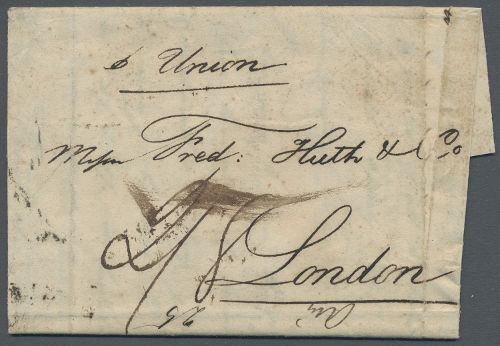 ℘ Union
Messrs Fred: Huth & Co
London